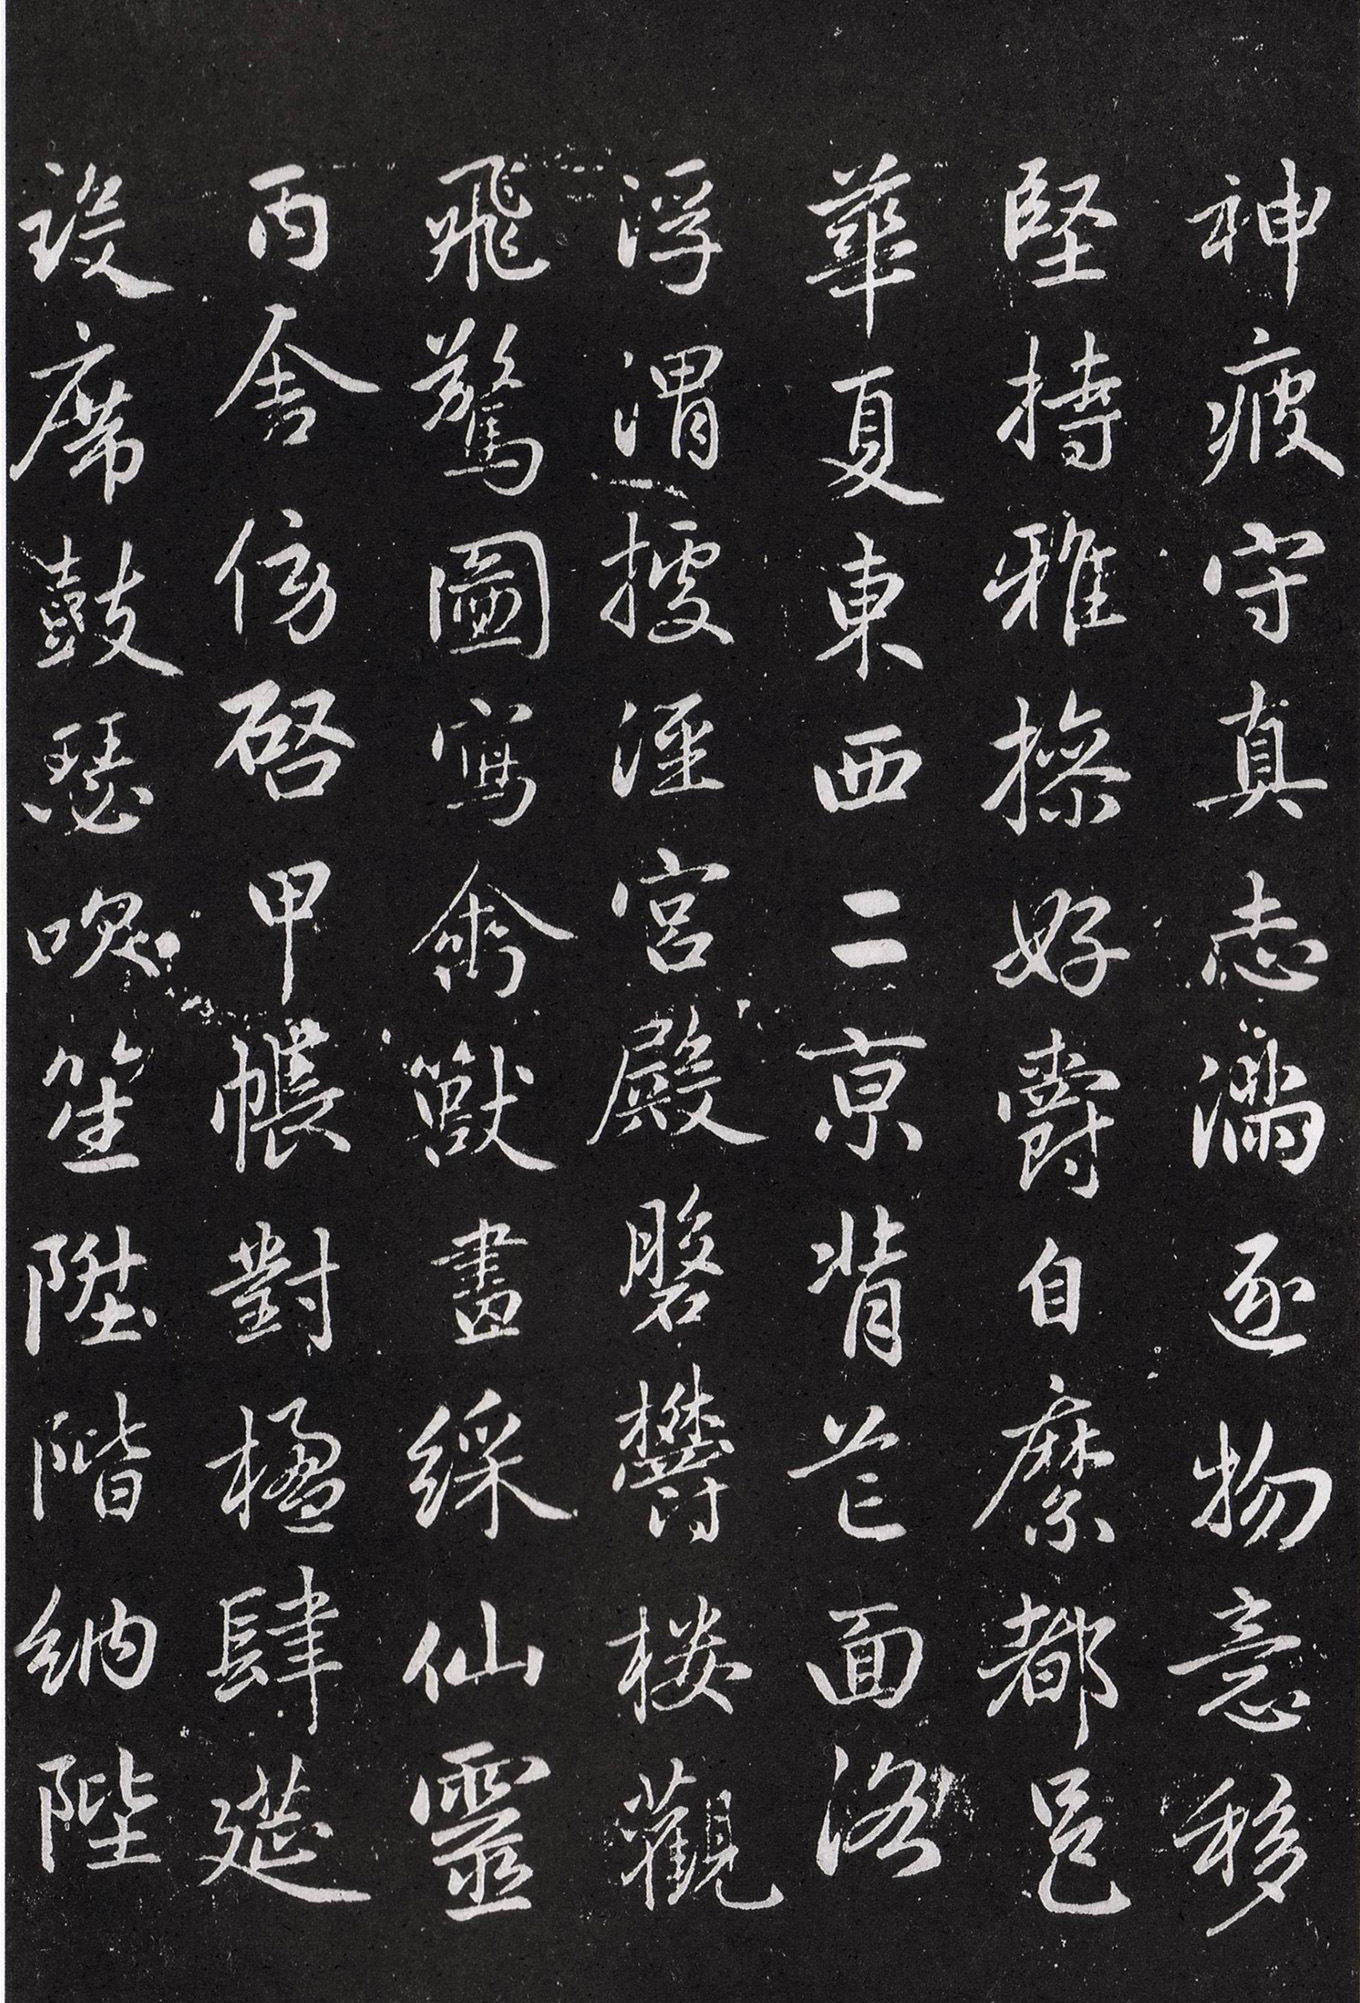 神疲守真志滿逐物意移
堅持雅操好爵自縻都邑
華夏東西二京背芒面洛
浮渭據涇宮殿磐鬱樓觀
飛驚圖寫禽獸畫綵仙靈
丙舍傍啓甲帳對楹肆筵
設席鼓瑟吹笙陞階納陛